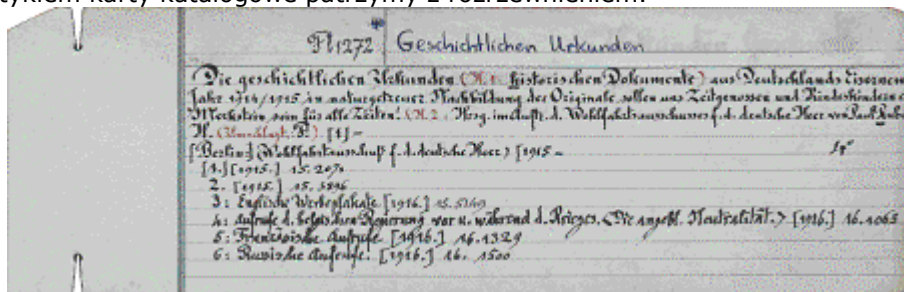 tykiem karty katalogowe patrzymy z rozrzewnieniem.
Fl 1272 Geschichtlichen Urkunden
Die geschichtlichen Urkunden (N.1: historischen Dokumente) aus Deutschlands Eisernem
Jahr 1914/1915 in naturgetreuer Nachbildung der Originale sollen uns Zeitgenossen und Kindeskindern e
Merkstein sein für alle Zeiten. (N.2: Hrsg. im Auftr. d. Wohlfahrtsausschusses f. d. deutsche Heer von Paul
N. (Umschlagt.: P.) [1] –
[Berlin:] (Wohlfahrtsausschuß f. d. deutsche Heer) [1915 –
[1.] [1915.] 15. 2070
2. [1915.] 15. 5896
3: Englische Werbeplakate. [1916.] 15.
4: Aufrufe d. belgischen Regierung vor u. während d. Krieges. <Die angebl. Neutralität.> [1916.] 16. 1063
5: Französische Aufrufe. [1916.] 16. 1329
6: Russische Aufrufe. [1916.] 16. 1500